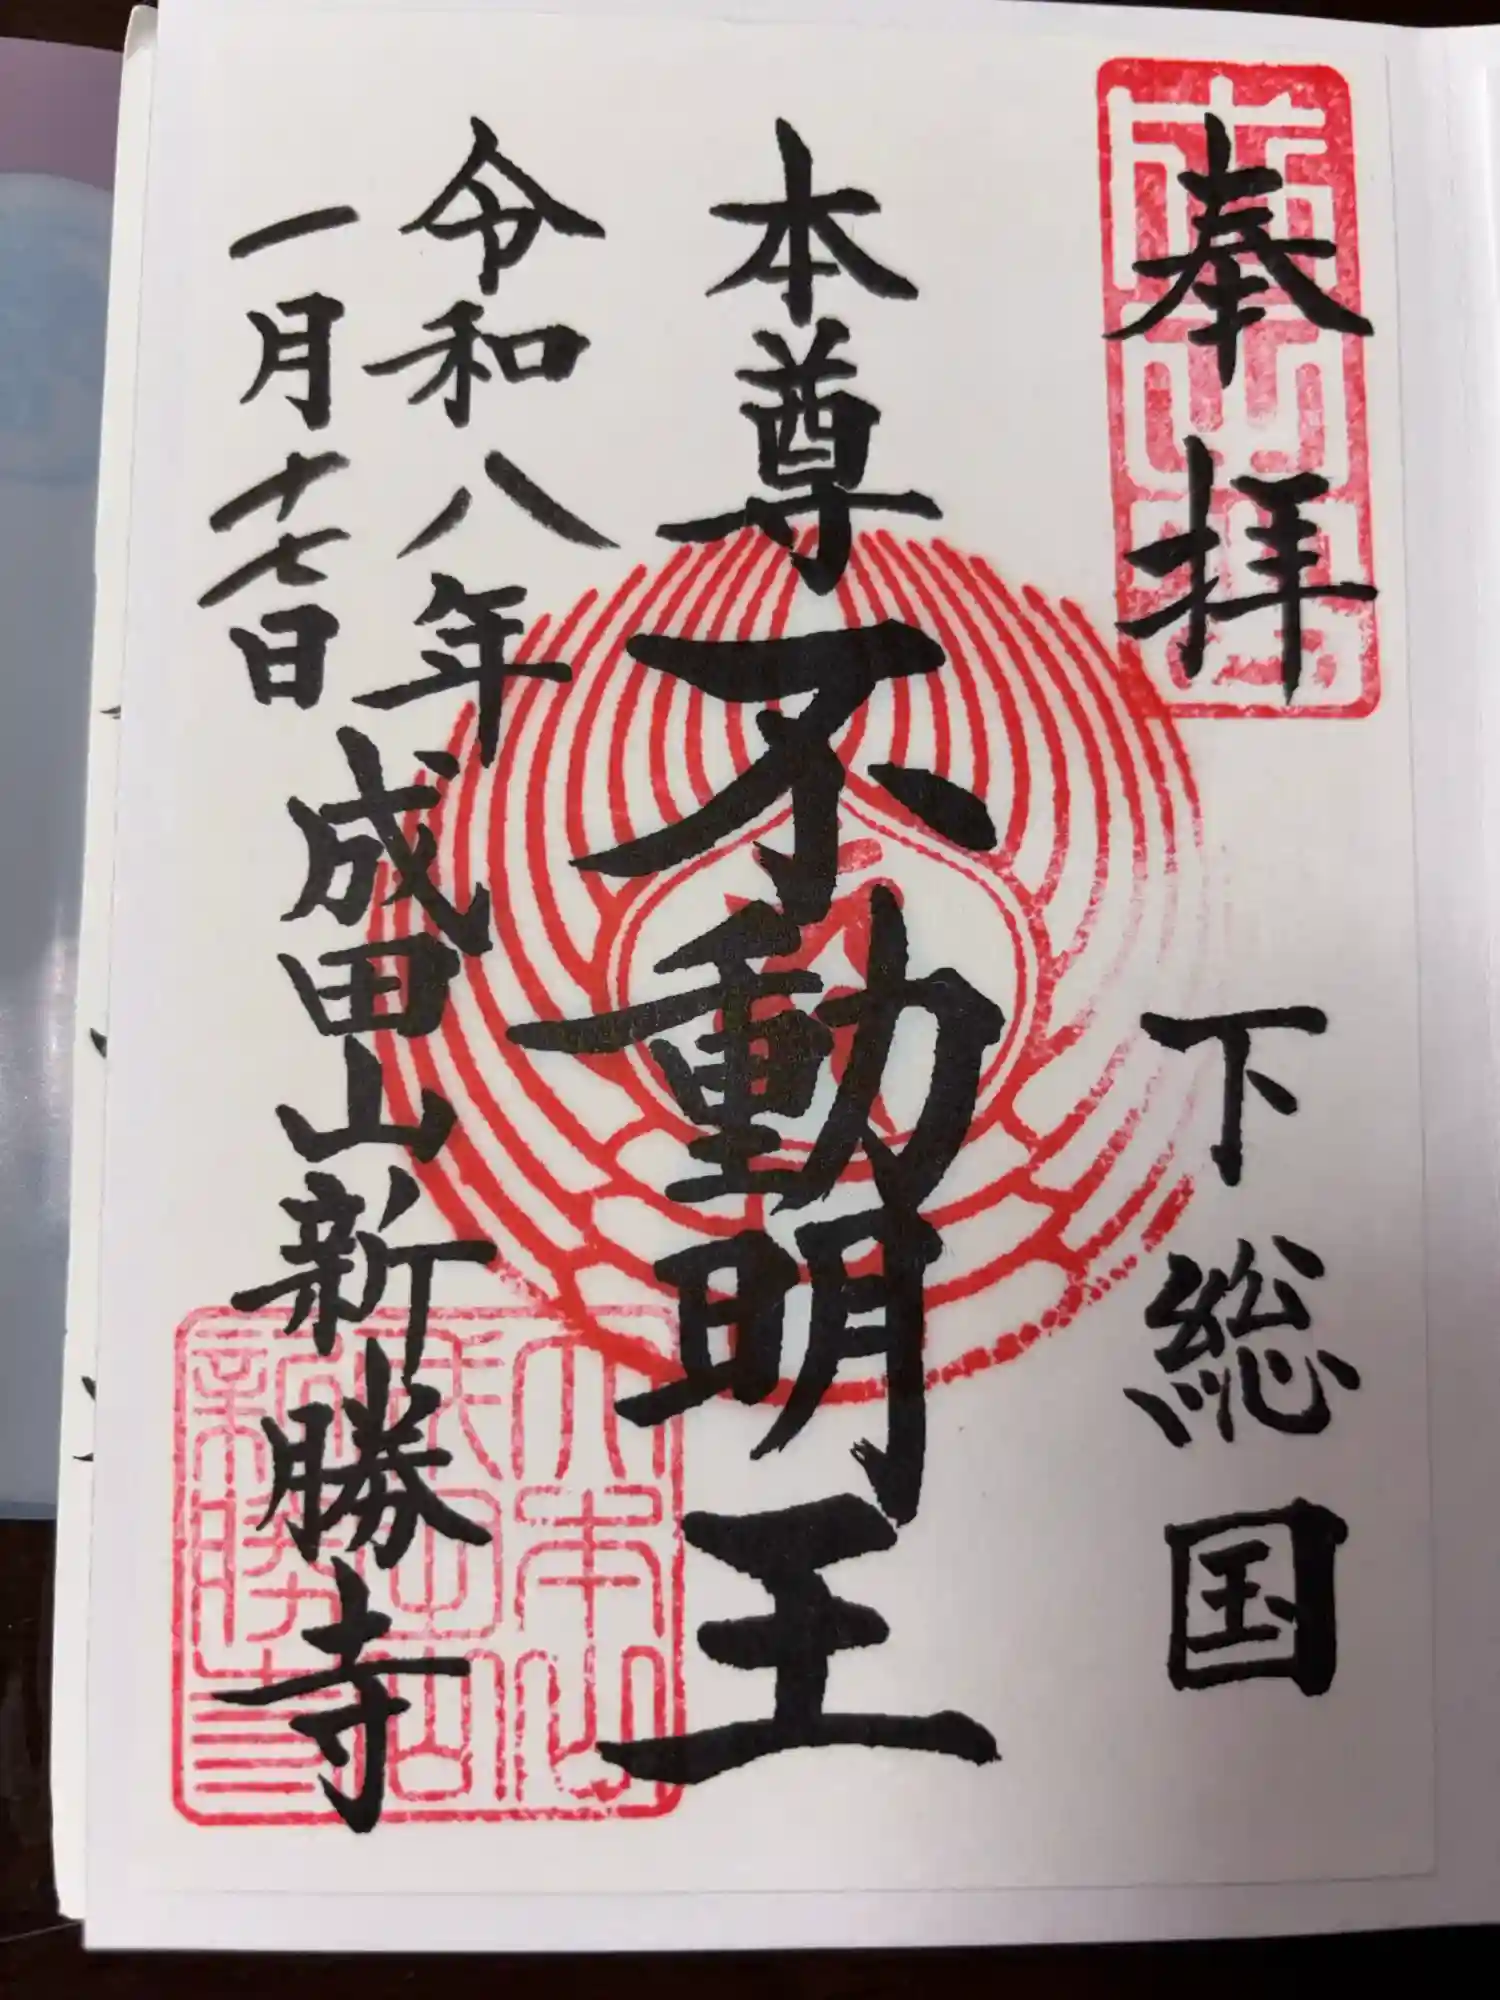 奉拝
下総国
本尊不動明王
令和八年
一月十七日
成田山新勝寺
大本山
成田山
新勝寺